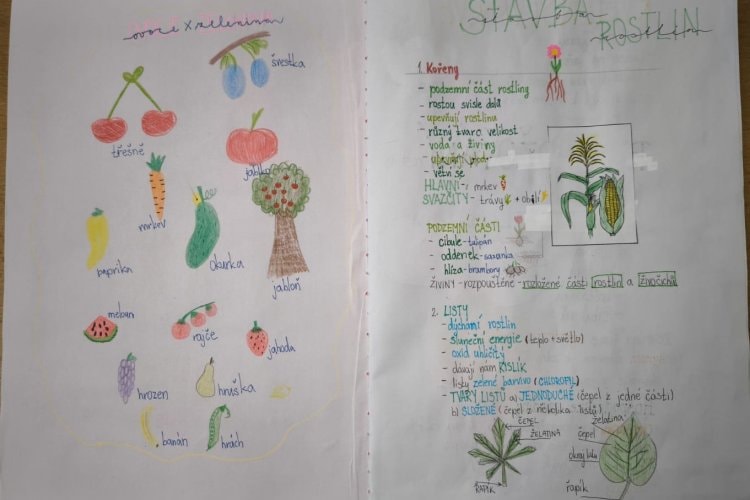 ovoce x zelenina
švestka
třešně
jablko
mrkev
paprika
okurka
jabloň
meloun
rajče
jahoda
hrozen
hruška
banán
hrách
STAVBA
ROSTLIN
1. Kořeny
- podzemní část rostliny
- rostou svisle dolů
- upevňují rostlinu
- různý tvar a velikost
- voda a živiny
- větví se
HLAVNÍ - mrkev
SVAZČITÝ - trávy + obilí
PODZEMNÍ ČÁSTI
- cibule - tulipán
- oddenek - sasanka
- hlíza - brambory
ŽIVINY - rozpouštěné - rozložené části rostlin a živočichů
2. LISTY
- dýchání rostlin
- sluneční energie (teplo + světlo)
- oxid uhličitý
- dávají nám KYSLÍK
- listy zelené barvivo (CHLOROFIL)
- TVARY LISTŮ a) JEDNODUCHÉ (čepel z jedné části)
b) SLOŽENÉ (čepel z několika listů)
ČEPEL
ŽILNATINA
ŘAPÍK
čepel
okraj listu
řapík